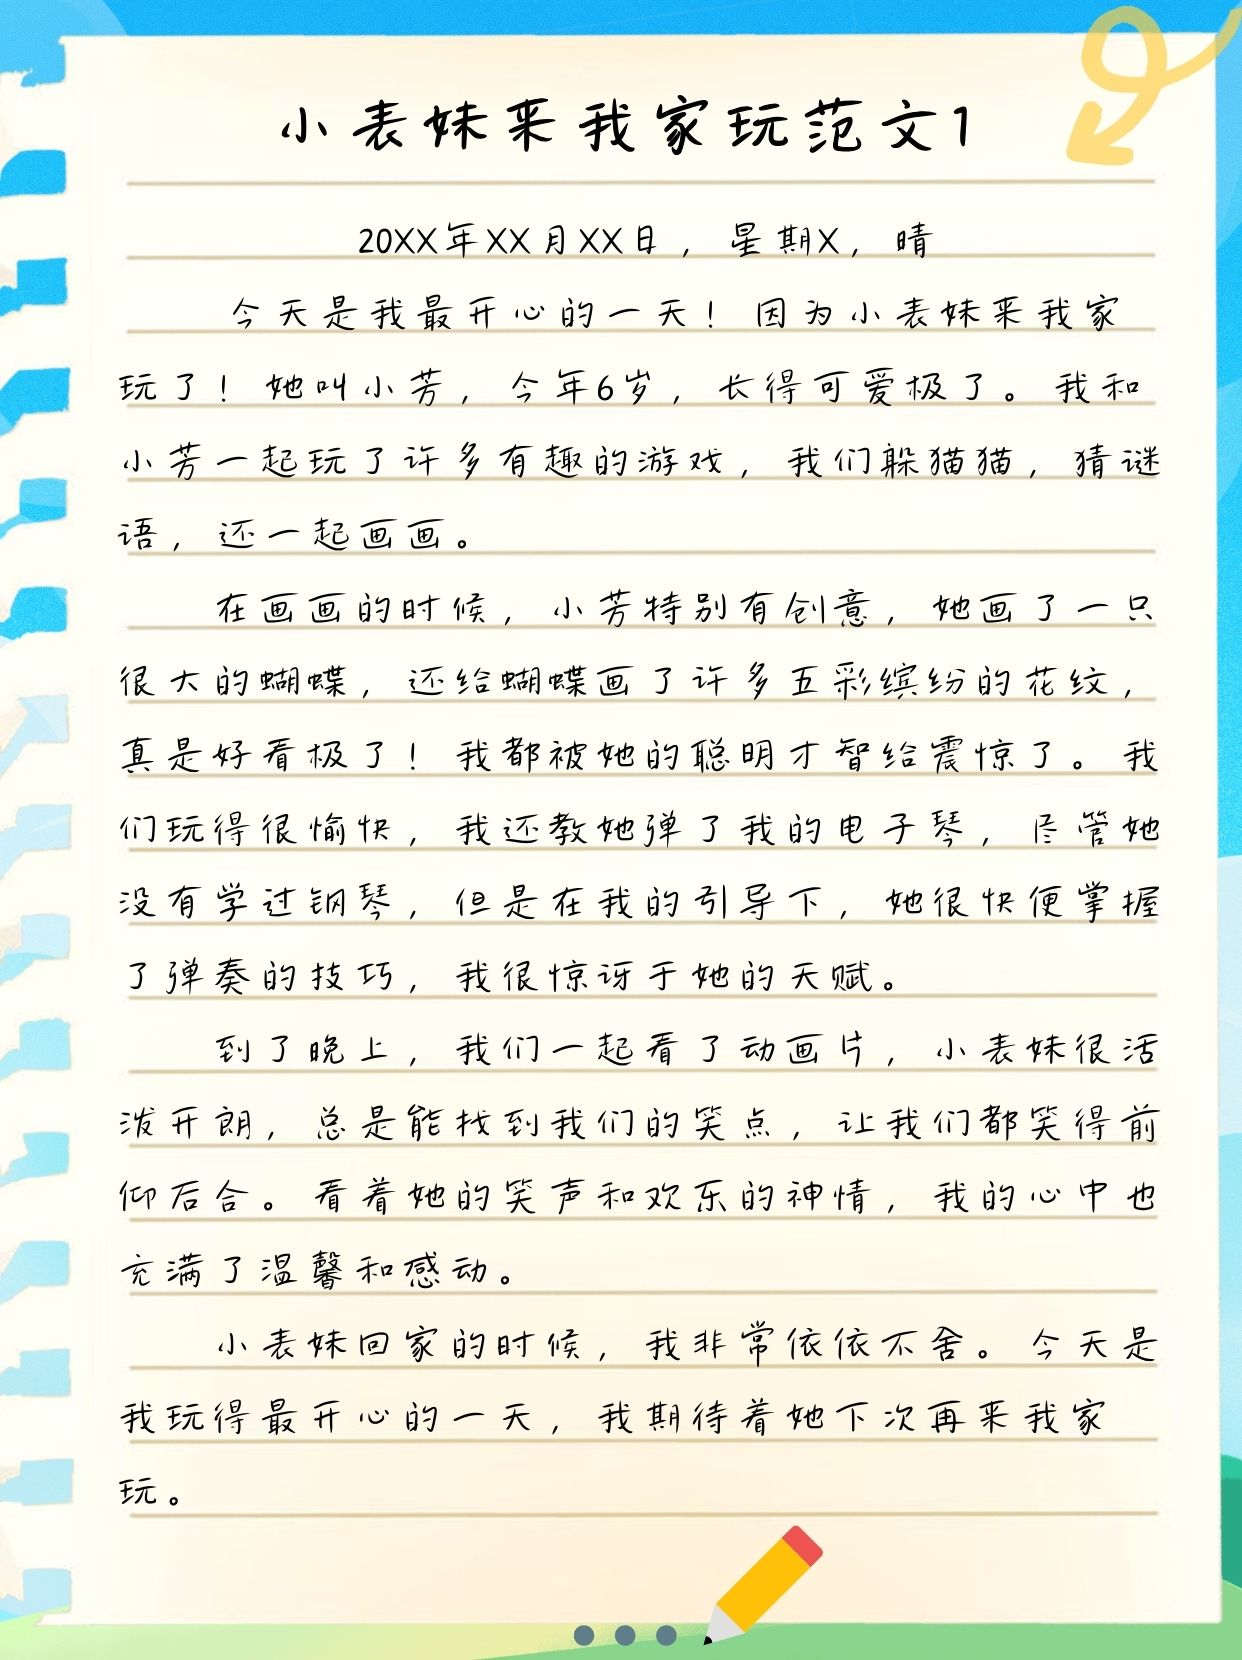 小表妹来我家玩范文1
20XX年XX月XX日，星期X，晴
今天是我最开心的一天！因为小表妹来我家
玩了！她叫小芳，今年6岁，长得可爱极了。我和
小芳一起玩了许多有趣的游戏，我们躲猫猫，猜谜
语，还一起画画。
在画画的时候，小芳特别有创意，她画了一只
很大的蝴蝶，还给蝴蝶画了许多五彩缤纷的花纹，
真是好看极了！我都被她的聪明才智给震惊了。我
们玩得很愉快，我还教她弹了我的电子琴，尽管她
没有学过钢琴，但是在我的引导下，她很快便掌握
了弹奏的技巧，我很惊讶于她的天赋。
到了晚上，我们一起看了动画片，小表妹很活
泼开朗，总是能找到我们的笑点，让我们都笑得前
仰后合。看着她的笑声和欢乐的神情，我的心中也
充满了温馨和感动。
小表妹回家的时候，我非常依依不舍。今天是
我玩得最开心的一天，我期待着她下次再来我家
玩。